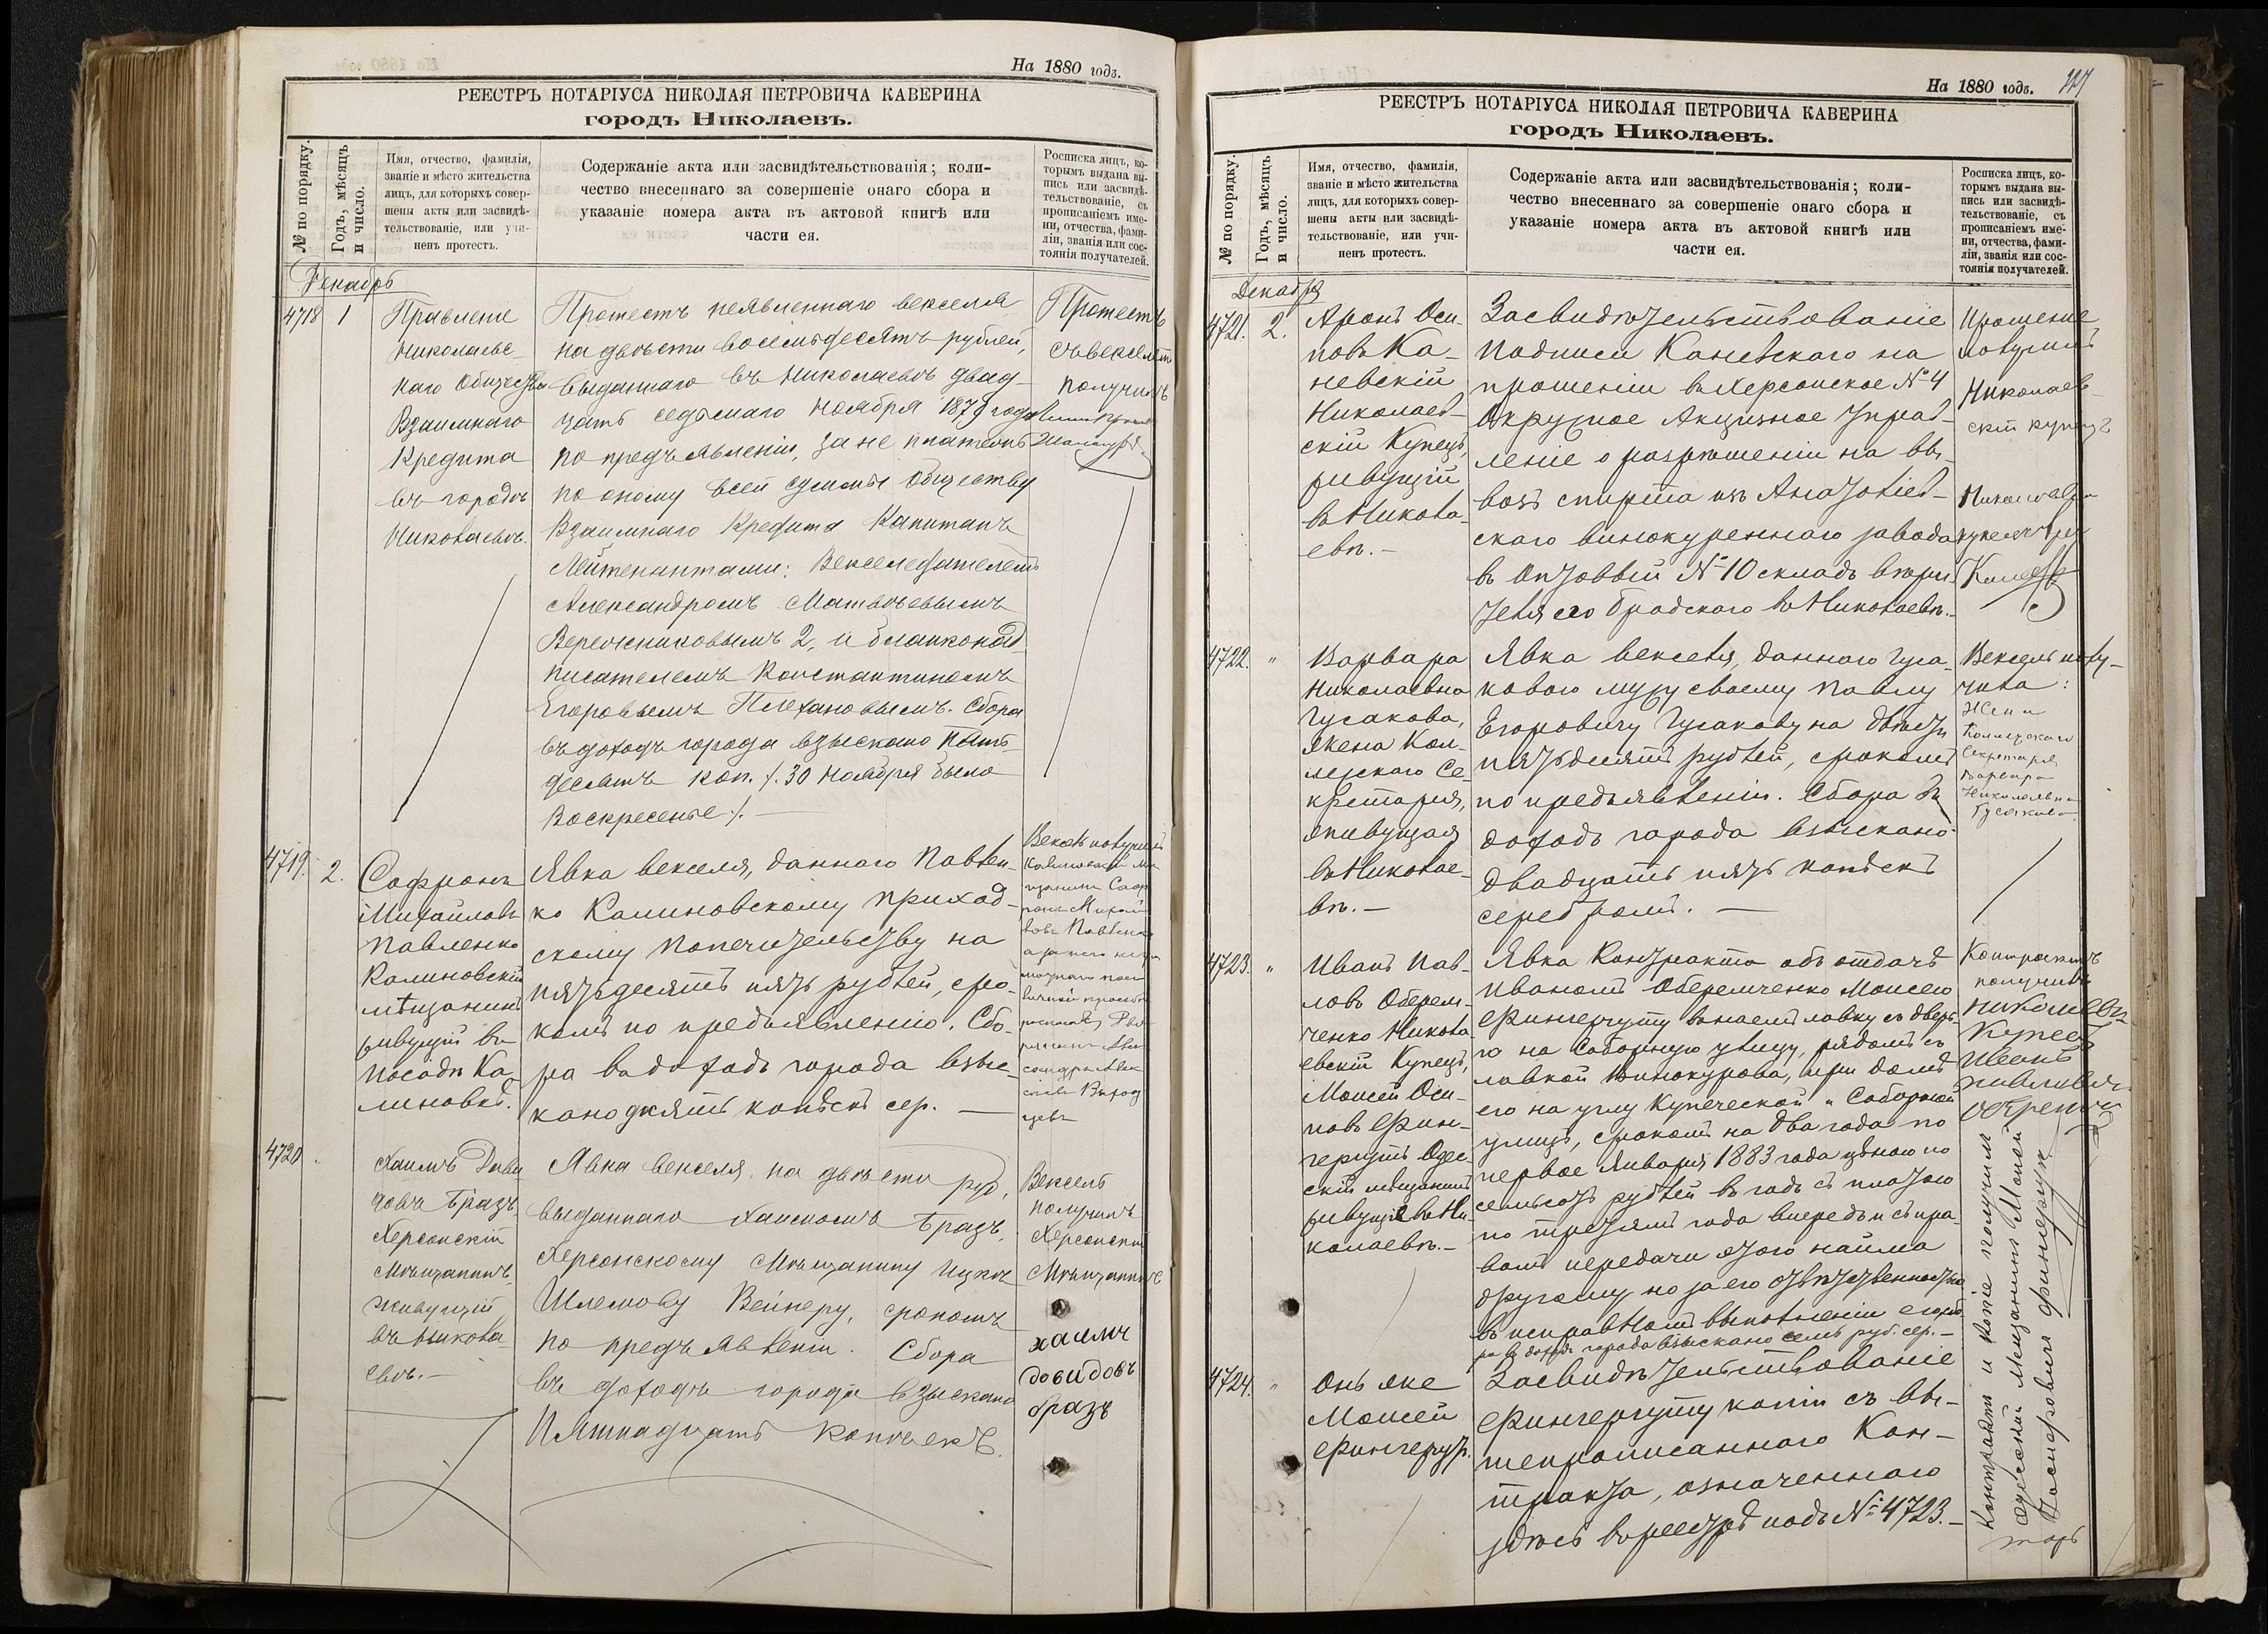 На 1880 годъ.
РЕЕСТРЪ НОТАРІУСА НИКОЛАЯ ПЕТРОВИЧА КАВЕРИНА
городъ Николаевъ.
№ по порядку.
Годъ, мѣсяцъ
и число.
Имя, отчество, фамилія,
званіе и мѣсто жительства
лицъ, для которыхъ совер-
шены акты или засвидѣ-
тельствованіе, или учи-
ненъ протестъ.
Содержаніе акта или засвидѣтельствованія; коли-
чество внесеннаго за совершеніе онаго сбора и
указаніе номера акта въ актовой книгѣ или
части ея.
Росписка лицъ, ко-
торымъ выдана вы-
пись или засвидѣ-
тельствованіе, съ
прописаніемъ име-
ни, отчества, фами-
ліи, званія или сос-
тоянія получателей.
Декабрь
4718
1
Правленіе
Николаевс-
каго Общества
Взаимнаго
Кредита
въ городѣ
Николаевѣ.
Протестъ неявленнаго векселя
на двѣсти восемьдесятъ рублей,
выданнаго въ Николаевѣ двад-
цать седьмаго Ноября 1879 года
по предъявленіи, за не платежъ
по оному всей суммы Обществу
Взаимнаго Кредита Капитанъ
Лейтенантами: Векселедателемъ
Александромъ Матвѣевымъ
Веревкниковымъ 2, и бланконад
писателемъ Константиномъ
Егоровымъ Плехановымъ. Сбора
въ доходъ города взыскано пять
десятъ коп. /. 30 Ноября было
Воскресенье /. —
Протестъ
съ векселемъ
получилъ
4719.
2.
Софронъ
Михайловъ
Павленко
Калиновскій
мѣщанинъ
живущій въ
посадѣ Ка-
линовкѣ.
Явка векселя, даннаго Павлен-
ко Калиновскому приход-
скому попечительству на
пятьдесятъ пять рублей, сро-
комъ по предъявленію. Сбо-
ра въ доходъ города взыс-
кано десять копѣекъ сер. —
Вексель получилъ
Калиновскій мѣ
щанинъ Соф
ронъ Михай
ловъ Павленко
4720
Хаимъ Дави
довъ Бразъ
Херсонскій
Мѣщанинъ,
живущій
въ Никола-
евѣ. —
Явка векселя на двѣсти руб,
выданнаго Хаимомъ Бразъ,
Херсонскому Мѣщанину Ицкѣ
Шлемову Вейнеру, срокомъ
по предъявленіи. Сбора
въ доходъ города взыскано
Пятнадцать копѣекъ.
Вексель
получилъ
Херсонскій
Мѣщанинъ
хаимъ
довидовъ
бразъ
На 1880 годъ.
РЕЕСТРЪ НОТАРІУСА НИКОЛАЯ ПЕТРОВИЧА КАВЕРИНА
городъ Николаевъ.
№ по порядку.
Годъ, мѣсяцъ
и число.
Имя, отчество, фамилія,
званіе и мѣсто жительства
лицъ, для которыхъ совер-
шены акты или засвидѣ-
тельствованіе, или учи-
ненъ протестъ.
Содержаніе акта или засвидѣтельствованія; коли-
чество внесеннаго за совершеніе онаго сбора и
указаніе номера акта въ актовой книгѣ или
части ея.
Росписка лицъ, ко-
торымъ выдана вы-
пись или засвидѣ-
тельствованіе, съ
прописаніемъ име-
ни, отчества, фами-
ліи, званія или сос-
тоянія получателей.
Декабря
4721.
2.
Аронъ Оси-
повъ Ка-
невскій
Николаев-
скій Купецъ,
живущій
въ Никола-
евѣ. —
Засвидѣтельствованіе
подписи Каневскаго на
прошеніи въ Херсонское № 4
Окружное Акцизное Управ-
леніе о разрѣшеніи на вы-
возъ спирта изъ Анатоліев-
скаго винокуреннаго завода
въ Оптовый № 10 складъ
его Бродскаго въ Николаевѣ. —
Прошеніе
получилъ
Николаев
скій купецъ
4722.
"
Варвара
Николаевна
Гусакова,
жена Кол-
лежскаго Се-
кретаря,
живущая
въ Николае-
вѣ. —
Явка векселя, даннаго Гуса-
ковою мужу своему Павлу
Егоровичу Гусакову на двѣсти
пятьдесятъ рублей, срокомъ
по предъявленіи. Сбора въ
доходъ города взыскано
двадцать пять копѣекъ
серебромъ. —
Вексель полу-
чила:
Жена
Коллежскаго
Секретаря
Варвара
Николаевна
Гусакова
4723.
"
Иванъ Пав-
ловъ Оберем-
ченко Никола
евскій Купецъ,
Моисей Оси-
повъ Фин-
герутъ Одес-
скій мѣщанинъ
живущіе въ Ни-
колаевѣ. —
Явка Контракта объ отдачѣ
Иваномъ Оберемченко Моисею
Фингеруту въ наемъ лавку съ дверь-
ю на Соборную улицу, рядомъ съ
лавкой Винокурова, при домѣ
его на углу Купеческой и Соборной
улицъ, срокомъ на два года по
первое Января 1883 года цѣною по
семьсотъ рублей въ годъ съ платою
по третямъ года впередъ и съ пра-
вомъ передачи этого найма
другому, но за его отвѣтственностью
въ исправномъ выполненіи его. Сбо-
ра въ доходъ города взыскано семь руб. сер. —
Контрактъ
получилъ
Купецъ
Иванъ
4724.
"
Онъ же
Моисей
Фингерутъ.
Засвидѣтельствованіе
Фингеруту копіи съ вы-
шепрописаннаго Кон-
тракта, означеннаго
здѣсь въ реестрѣ подъ № 4723. —
Контрактъ и копіе получилъ
Одесскій Мещанинъ Мовсій